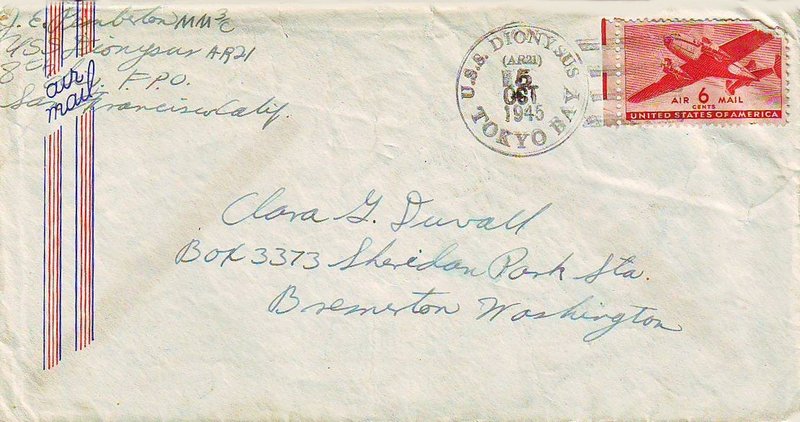 J. E. Pemberton MM3/c
USS Dionysus AR21
F.P.O.
San Francisco Calif.
air
mail
U.S.S. DIONYSUS
(AR21)
5
OCT
1945
TOKYO BAY
AIR 6 MAIL
CENTS
UNITED STATES OF AMERICA
Clara G. Duvall
Box 3373 Sheridan Park Sta.
Bremerton Washington